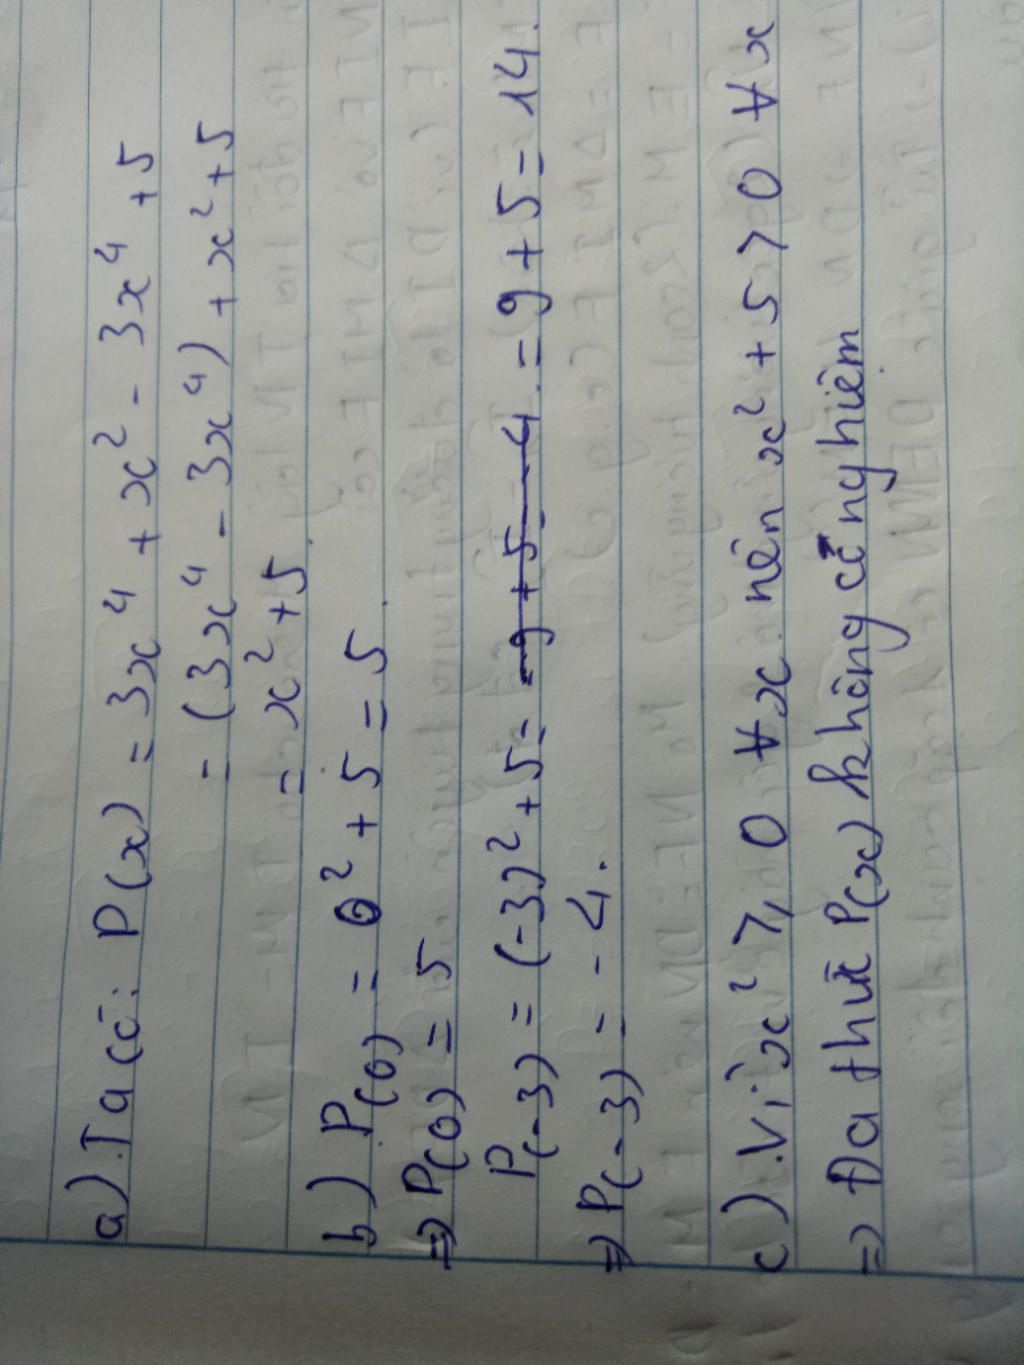 a) Ta có: P(x) = 3x⁴ + x² - 3x⁴ + 5
= (3x⁴ - 3x⁴) + x² + 5
= x² + 5.
b) P(0) = 0² + 5 = 5.
=> P(0) = 5
P(-3) = (-3)² + 5 = -9 + 5 = -4. = 9 + 5 = 14.
=> P(-3) = -4.
c) Vì x² ⩾ 0 ∀x nên x² + 5 > 0 ∀x
=> Đa thức P(x) không có nghiệm